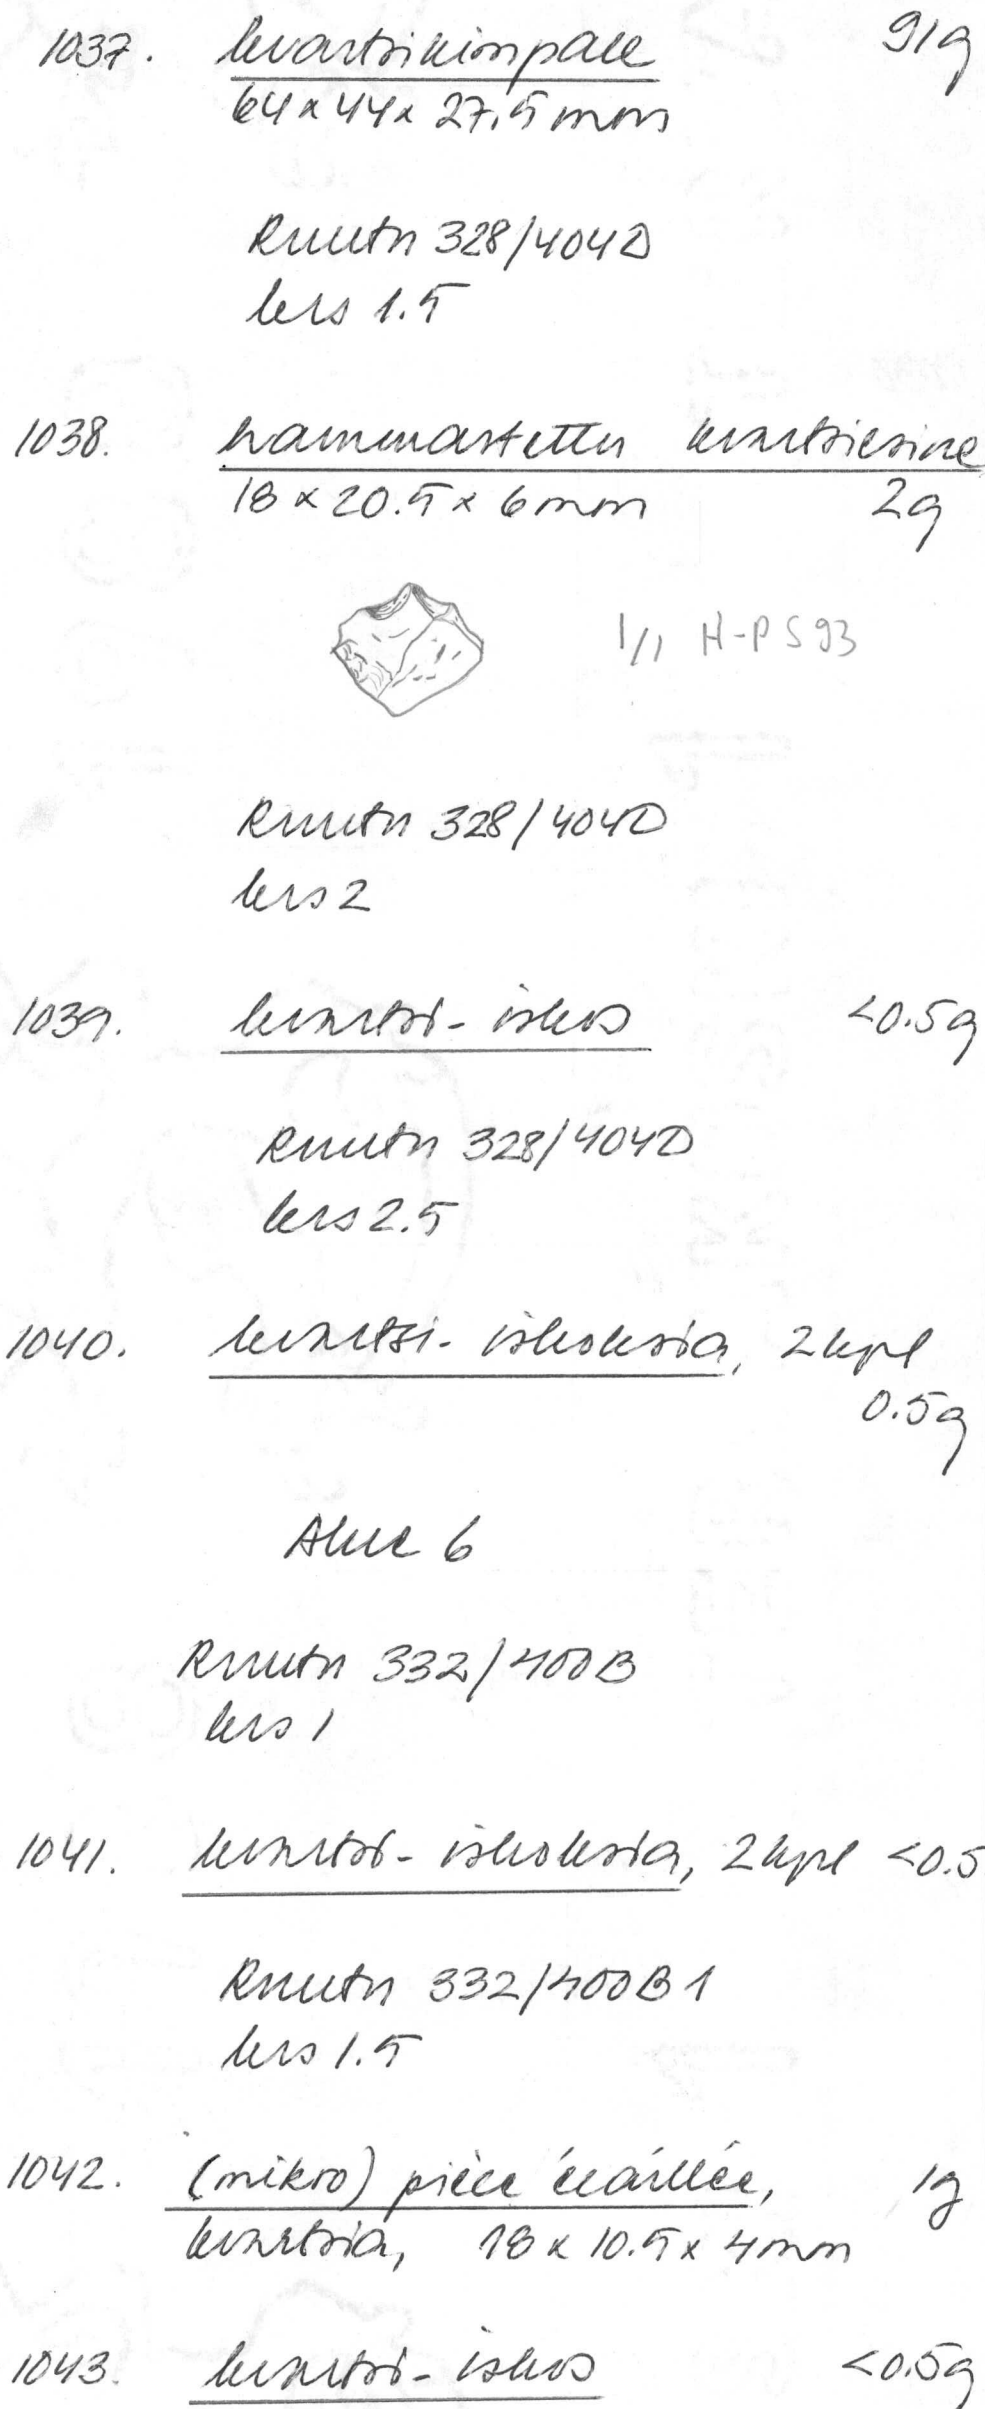 1037. kvartsikimpale 91g
64 x 44 x 27.5 mm
Ruutu 328/404D
krs 1.5
1038. hammastettu kvartsiesine
18 x 20.5 x 6 mm 2g
1/1 H-P S 93
Ruutu 328/404D
krs 2
1039. kvartsi-iskos <0.5g
Ruutu 328/404D
krs 2.5
1040. kvartsi-iskoksia, 2 kpl
0.5g
Alue 6
Ruutu 332/400B
krs 1
1041. kvartsi-iskoksia, 2 kpl <0.5
Ruutu 332/400B1
krs 1.5
1042. (mikro) pièce écaillée, 1g
kvartsia, 18 x 10.5 x 4 mm
1043. kvartsi-iskos <0.5g